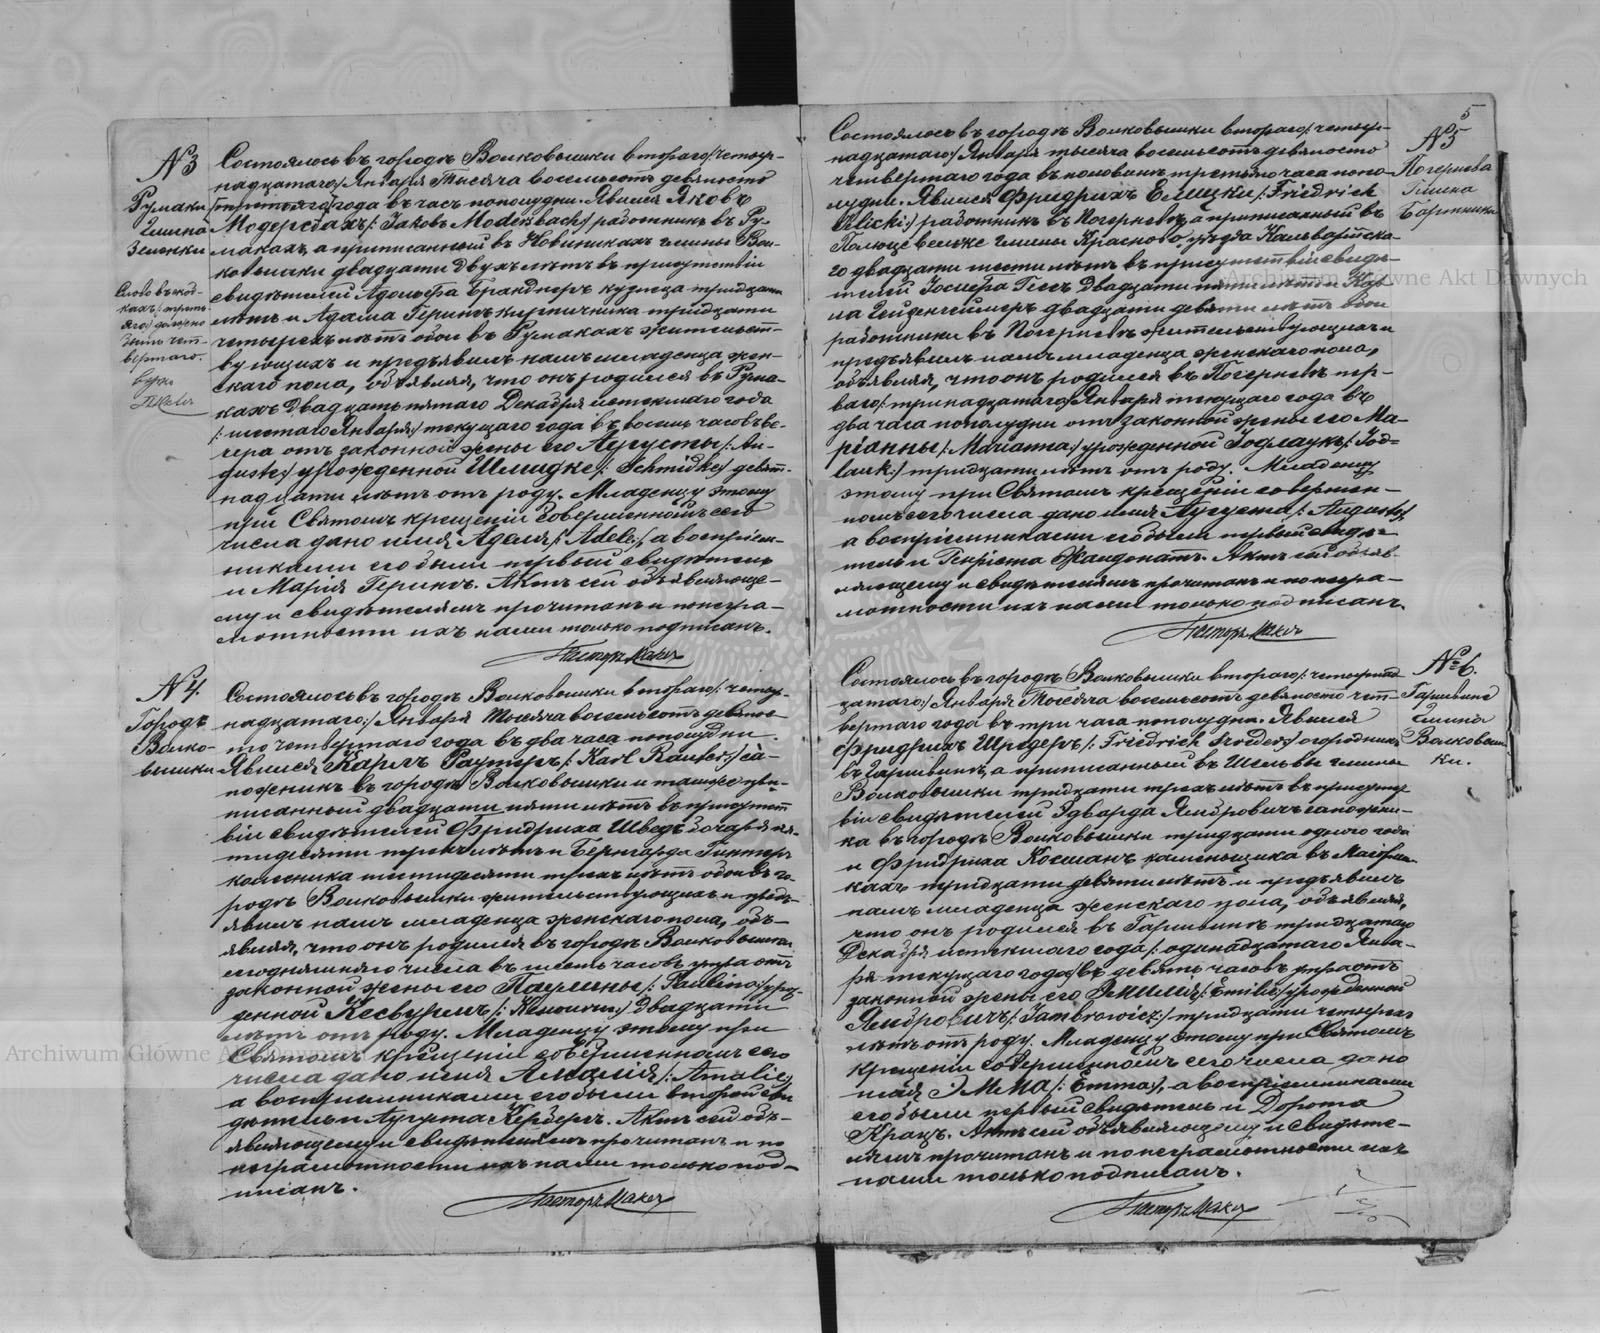 № 3
Румаки
гмина
Зеленки
Слово въ код-
кахъ: треть-
яго) должно
быть чет-
вертаго.
Состоялось въ городѣ Волковышки втораго /: четыр-
надцатаго :/ Января тысяча восемьсотъ девяносто
третьяго года въ часъ пополудни. Явился Яковъ
Модерсбахъ /: Jakob Modersbach :/ работникъ въ Ру-
макахъ, а приписанный въ Новиникахъ гмины Вол-
ковышки двадцати двухъ лѣтъ въ присутствіи
свидѣтелей Адольфа Бранднеръ кузнеца тридцати
лѣтъ и Адама Геринъ кирпичника тридцати
четырехъ лѣтъ обои въ Румакахъ жительст-
вующихъ и предъявилъ намъ младенца жен-
скаго пола, объявляя, что онъ родился въ Рума-
кахъ двадцать пятаго Декабря истекшаго года
/: шестаго Января :/ текущаго года въ восемь часовъ ве-
чера отъ законной жены его Августы /: Au-
guste :/ урожденной Шмидке /: Schmidke :/ девят-
надцати лѣтъ отъ роду. Младенцу этому
при Святомъ крещеніи совершенномъ сего
числа дано имя Адель /: Adele :/, а воспріем-
никами его были первый свидѣтель
и Марія Геринъ. Актъ сей объявляюще-
му и свидѣтелямъ прочитанъ и по негра-
мотности ихъ нами только подписанъ.
Пасторъ
№ 4.
Городъ
Волко-
вышки
Состоялось въ городѣ Волковышки втораго /: четыр-
надцатаго :/ Января тысяча восемьсотъ девянос-
то четвертаго года въ два часа пополудни.
Явился Карлъ Раутеръ /: Karl Rauter :/ са-
пожникъ въ городѣ Волковышки и также при-
писанный двадцати пяти лѣтъ въ присутст-
віи свидѣтелей Фридриха Шведъ бочаря пя-
тидесяти трехъ лѣтъ и Бернгарда Гинтеръ
колесника шестидесяти трехъ лѣтъ обои въ го-
родѣ Волковышки жительствующихъ и предъ-
явилъ намъ младенца женскаго пола, объ-
являя, что онъ родился въ городѣ Волковышки
сегодняшняго числа въ шесть часовъ утра отъ
законной жены его Паулины /: Pauline :/ урож-
денной двадцати
лѣтъ отъ роду. Младенцу этому при
Святомъ крещеніи совершенномъ сего
числа дано имя Амалія /: Amalie :/
а воспріемниками его были второй сви-
дѣтель и Августа Керберъ. Актъ сей объ-
являющему и свидѣтелямъ прочитанъ и по
неграмотности ихъ нами только под-
писанъ.
Пасторъ
5
№ 5
гмина
Состоялось въ городѣ Волковышки втораго /: четыр-
надцатаго :/ Января тысяча восемьсотъ девяносто
четвертаго года въ половинѣ третьяго часа попо-
лудни. Явился Фридрихъ Елицки /: Friedrich
Jelicki :/ работникъ въ Погерневѣ, а приписанный въ
гмины Красново уѣзда Кальварійска-
го двадцати шести лѣтъ въ присутствіи свидѣ-
телей Іосифа Гиссъ двадцати пяти лѣтъ и Кар-
ла двадцати девяти лѣтъ обои
работники въ Погерневѣ жительствующихъ и
предъявилъ намъ младенца женскаго пола,
объявляя, что онъ родился въ Погерневѣ пер-
ваго /: тринадцатаго :/ Января текущаго года въ
два часа пополудни отъ законной жены его Ма-
ріанны /: Marianna :/ урожденной Годлаукъ /: God-
lauk :/ тридцати лѣтъ отъ роду. Младенцу
этому при Святомъ крещеніи совершен-
номъ сего числа дано имя Августа /: Auguste :/,
а воспріемниками его были первый свидѣ-
тель и Генріета Жандонатъ. Актъ сей объяв-
ляющему и свидѣтелямъ прочитанъ и по негра-
мотности ихъ нами только подписанъ.
Пасторъ
№ 6.
гмина
Волковыш-
ки.
Состоялось въ городѣ Волковышки втораго /: четырнад-
цатаго :/ Января тысяча восемьсотъ девяносто чет-
вертаго года въ три часа пополудни. Явился
Фридрихъ Шредеръ /: Friedrich Sröder :/ огородникъ
въ Гаришвинѣ, а приписанный въ Шельвы гмины
Волковышки тридцати трехъ лѣтъ въ присутст-
віи свидѣтелей Эдварда Ямбровичъ сапожни-
ка въ городѣ Волковышки тридцати одного года
и Фридриха Косманъ каменьщика въ
кахъ тридцати девяти лѣтъ и предъявилъ
намъ младенца женскаго пола, объявляя,
что онъ родился въ Гаришвинѣ тридцатаго
Декабря истекшаго года /: одинадцатаго Янва-
ря текущаго года :/ въ девять часовъ утра отъ
законной жены его Эмиліи /: Emilie :/ урожденной
Ямбровичъ /: Jambrowicz :/ тридцати четырехъ
лѣтъ отъ роду. Младенцу этому при Святомъ
крещеніи совершенномъ сего числа дано
имя Эмма /: Emma :/, а воспріемниками
его были первый свидѣтель и Дорота
Крацъ. Актъ сей объявляющему и свидѣте-
лямъ прочитанъ и по неграмотности ихъ
нами только подписанъ.
Пасторъ
Archiwum Główne Akt Dawnych
Archiwum Główne